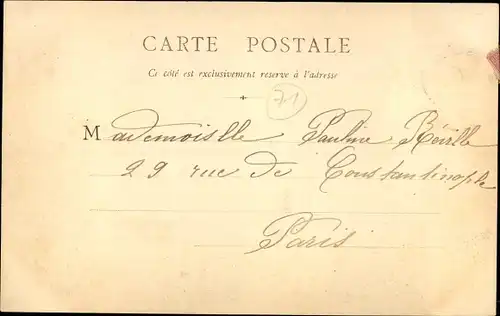 CARTE POSTALE
Ce côté est exclusivement reservé à l'adresse
71
Mademoiselle Pauline Réville
29 rue de Constantinople
Paris